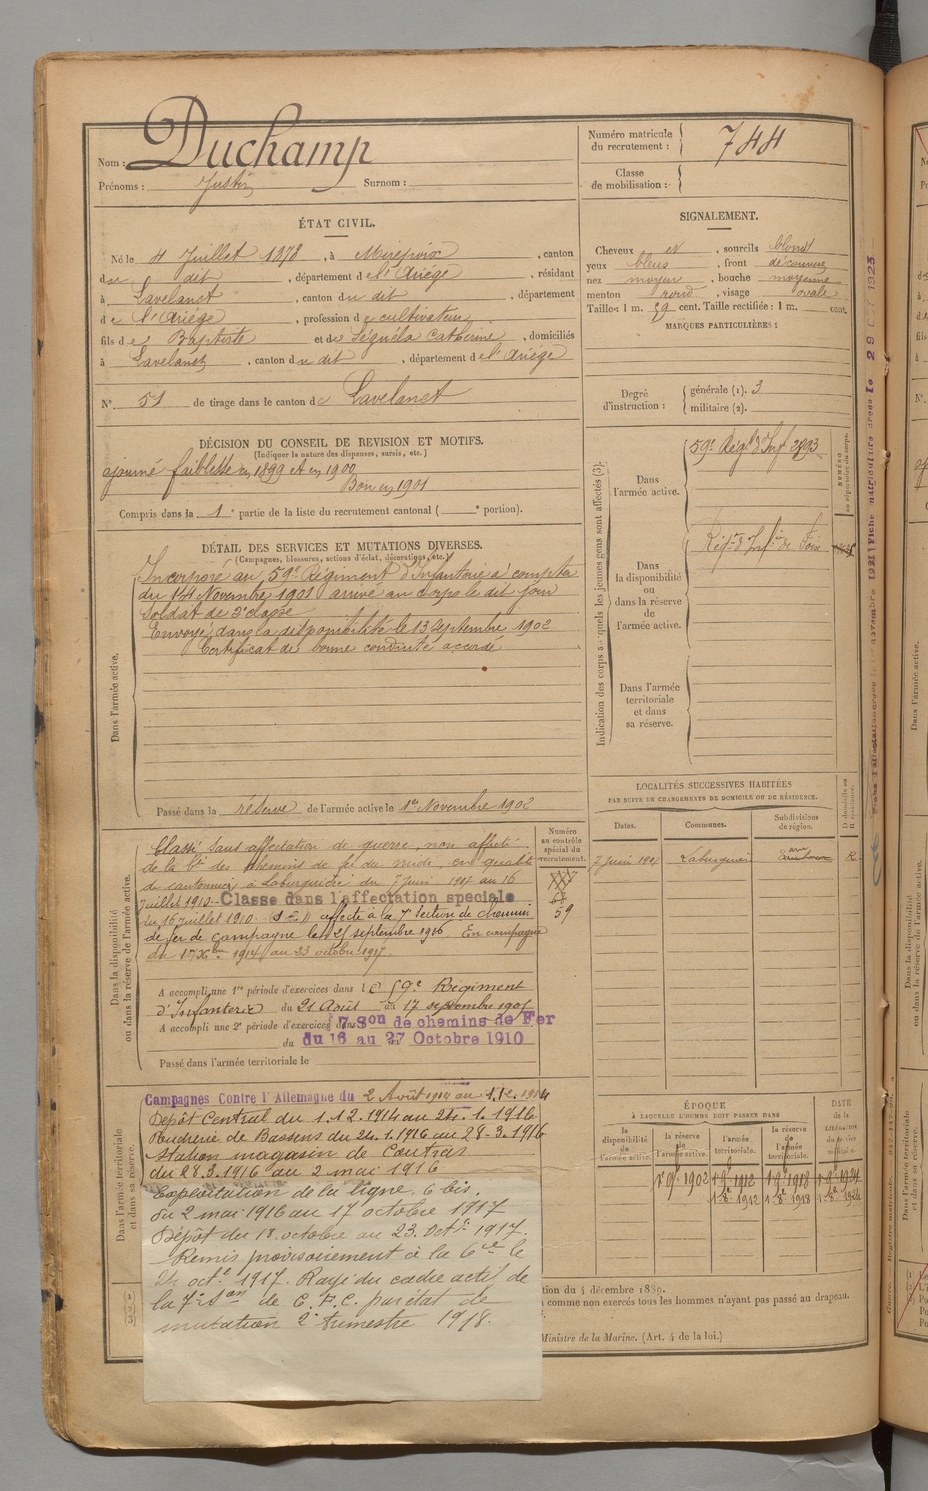 Nom : Duchamp
Prénoms : Justin Surnom :
Numéro matricule du recrutement : 744
Classe de mobilisation :
ÉTAT CIVIL.
Né le 4 Juillet 1878, à Mirepoix, canton
du dit, département de l'Ariège, résidant
à Lavelanet, canton du dit, département
de l'Ariège, profession de cultivateur
fils de Baptiste et de Séguéla Catherine, domiciliés
à Lavelanet, canton du dit, département de l'Ariège
N° 51 de tirage dans le canton de Lavelanet
SIGNALEMENT.
Cheveux et, sourcils blond
yeux bleus, front découvert
nez moyen, bouche moyenne
menton rond, visage ovale
Taille : 1 m. 59 cent. Taille rectifiée : 1 m. cent.
MARQUES PARTICULIÈRES :
Degré d'instruction : générale (1). 3
militaire (2).
DÉCISION DU CONSEIL DE REVISION ET MOTIFS.
(Indiquer la nature des dispenses, sursis, etc.)
ajourné faiblesse en 1899 et en 1900
Bon en 1901
Compris dans la 1e partie de la liste du recrutement cantonal ( e portion).
DÉTAIL DES SERVICES ET MUTATIONS DIVERSES.
(Campagnes, blessures, actions d'éclat, décorations, etc.)
Dans l'armée active.
Incorporé au 59e Régiment d'Infanterie à compter
du 14 Novembre 1901 arrivé au Corps le dit jour
Soldat de 2e classe
Envoyé dans la disponibilité le 13 Septembre 1902
Certificat de bonne conduite accordé
Passé dans la réserve de l'armée active le 1er Novembre 1902
Indication des corps auxquels les jeunes gens sont affectés (3).
NUMÉRO au répertoire du corps.
Dans l'armée active.
59e Régt d'Inf
Dans la disponibilité ou dans la réserve de l'armée active.
Régt d'Infie de Foix
Dans l'armée territoriale et dans sa réserve.
Dans la disponibilité ou dans la réserve de l'armée active.
Numéro au contrôle spécial du recrutement.
Classé sans affectation de guerre, non affecté
de la Cie des chemins de fer du midi, en qualité
de cantonnier à Laburguière du 7 Juin 1904 au 16
Juillet 1910. Classe dans l'affectation speciale
du 16 juillet 1910. affecté à la 7e Section de chemins
de fer de campagne le 25 septembre 1906. En campagne
1914 au 23 octobre 1917.
59
A accompli une 1re période d'exercices dans le 59e Régiment
d'Infanterie du 21 Août au 17 septembre
A accompli une 2e période d'exercices dans 7 Son de chemins de Fer
du 16 au 27 Octobre 1910
Passé dans l'armée territoriale le
LOCALITÉS SUCCESSIVES HABITÉES
PAR SUITE DE CHANGEMENTS DE DOMICILE OU DE RÉSIDENCE.
Dates. Communes. Subdivisions de région. D domicile ou R résidence.
7 Juin R.
ÉPOQUE
À LAQUELLE L'HOMME DOIT PASSER DANS
la disponibilité de l'armée active. la réserve de l'armée active. l'armée territoriale. la réserve de l'armée territoriale. DATE de la LIBÉRATION du service militaire.
1er 9bre 1902 1er 9bre 1912 1er 9bre 1918 1er 9bre 1924
1912 1918 1924
Dans l'armée territoriale et dans sa réserve.
Campagnes Contre l'Allemagne du 2 Août 1914 au 1.12.1914
Depôt Central du 1.12.1914 au 24.1.1916.
Poudrerie de Bassens du 24.1.1916 au 28-3.1916
Station magasin de Coutras
du 28.3.1916 au 2 mai 1916
Exploitation de la ligne 6 bis.
du 2 mai 1916 au 17 octobre 1917
Dépôt du 18 octobre au 23. Octbre 1917.
Remis provisoirement à la Cie le
24 octbre 1917. Rayé du cadre actif de
la 7e Son de C.F.C. par état de
mutation 2e trimestre 1918.
tion du 4 décembre 1889.
comme non exercés tous les hommes n'ayant pas passé au drapeau.
Ministre de la Marine. (Art. 4 de la loi.)
(1)
(2)
(3)